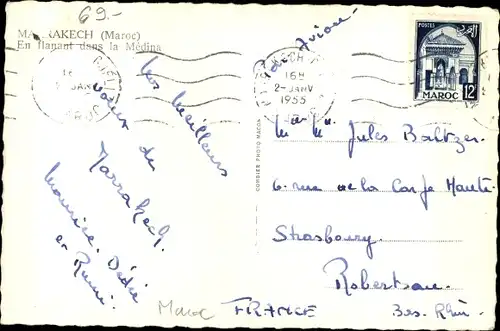 69.-
MARRAKECH (Maroc)
En flanant dans la Médina
Par Avion
16H
2-JANV
1955
POSTES
MAROC
12
Les meilleurs
voeux de
Marrakech.
Maurice, Dédée
et Rémi.
COMBIER PHOTO MACON
Mr Me Jules Baltzer
6. rue de la Carpe Haute
Strasbourg
Robertsau
Bas. Rhin
Maroc
FRANCE